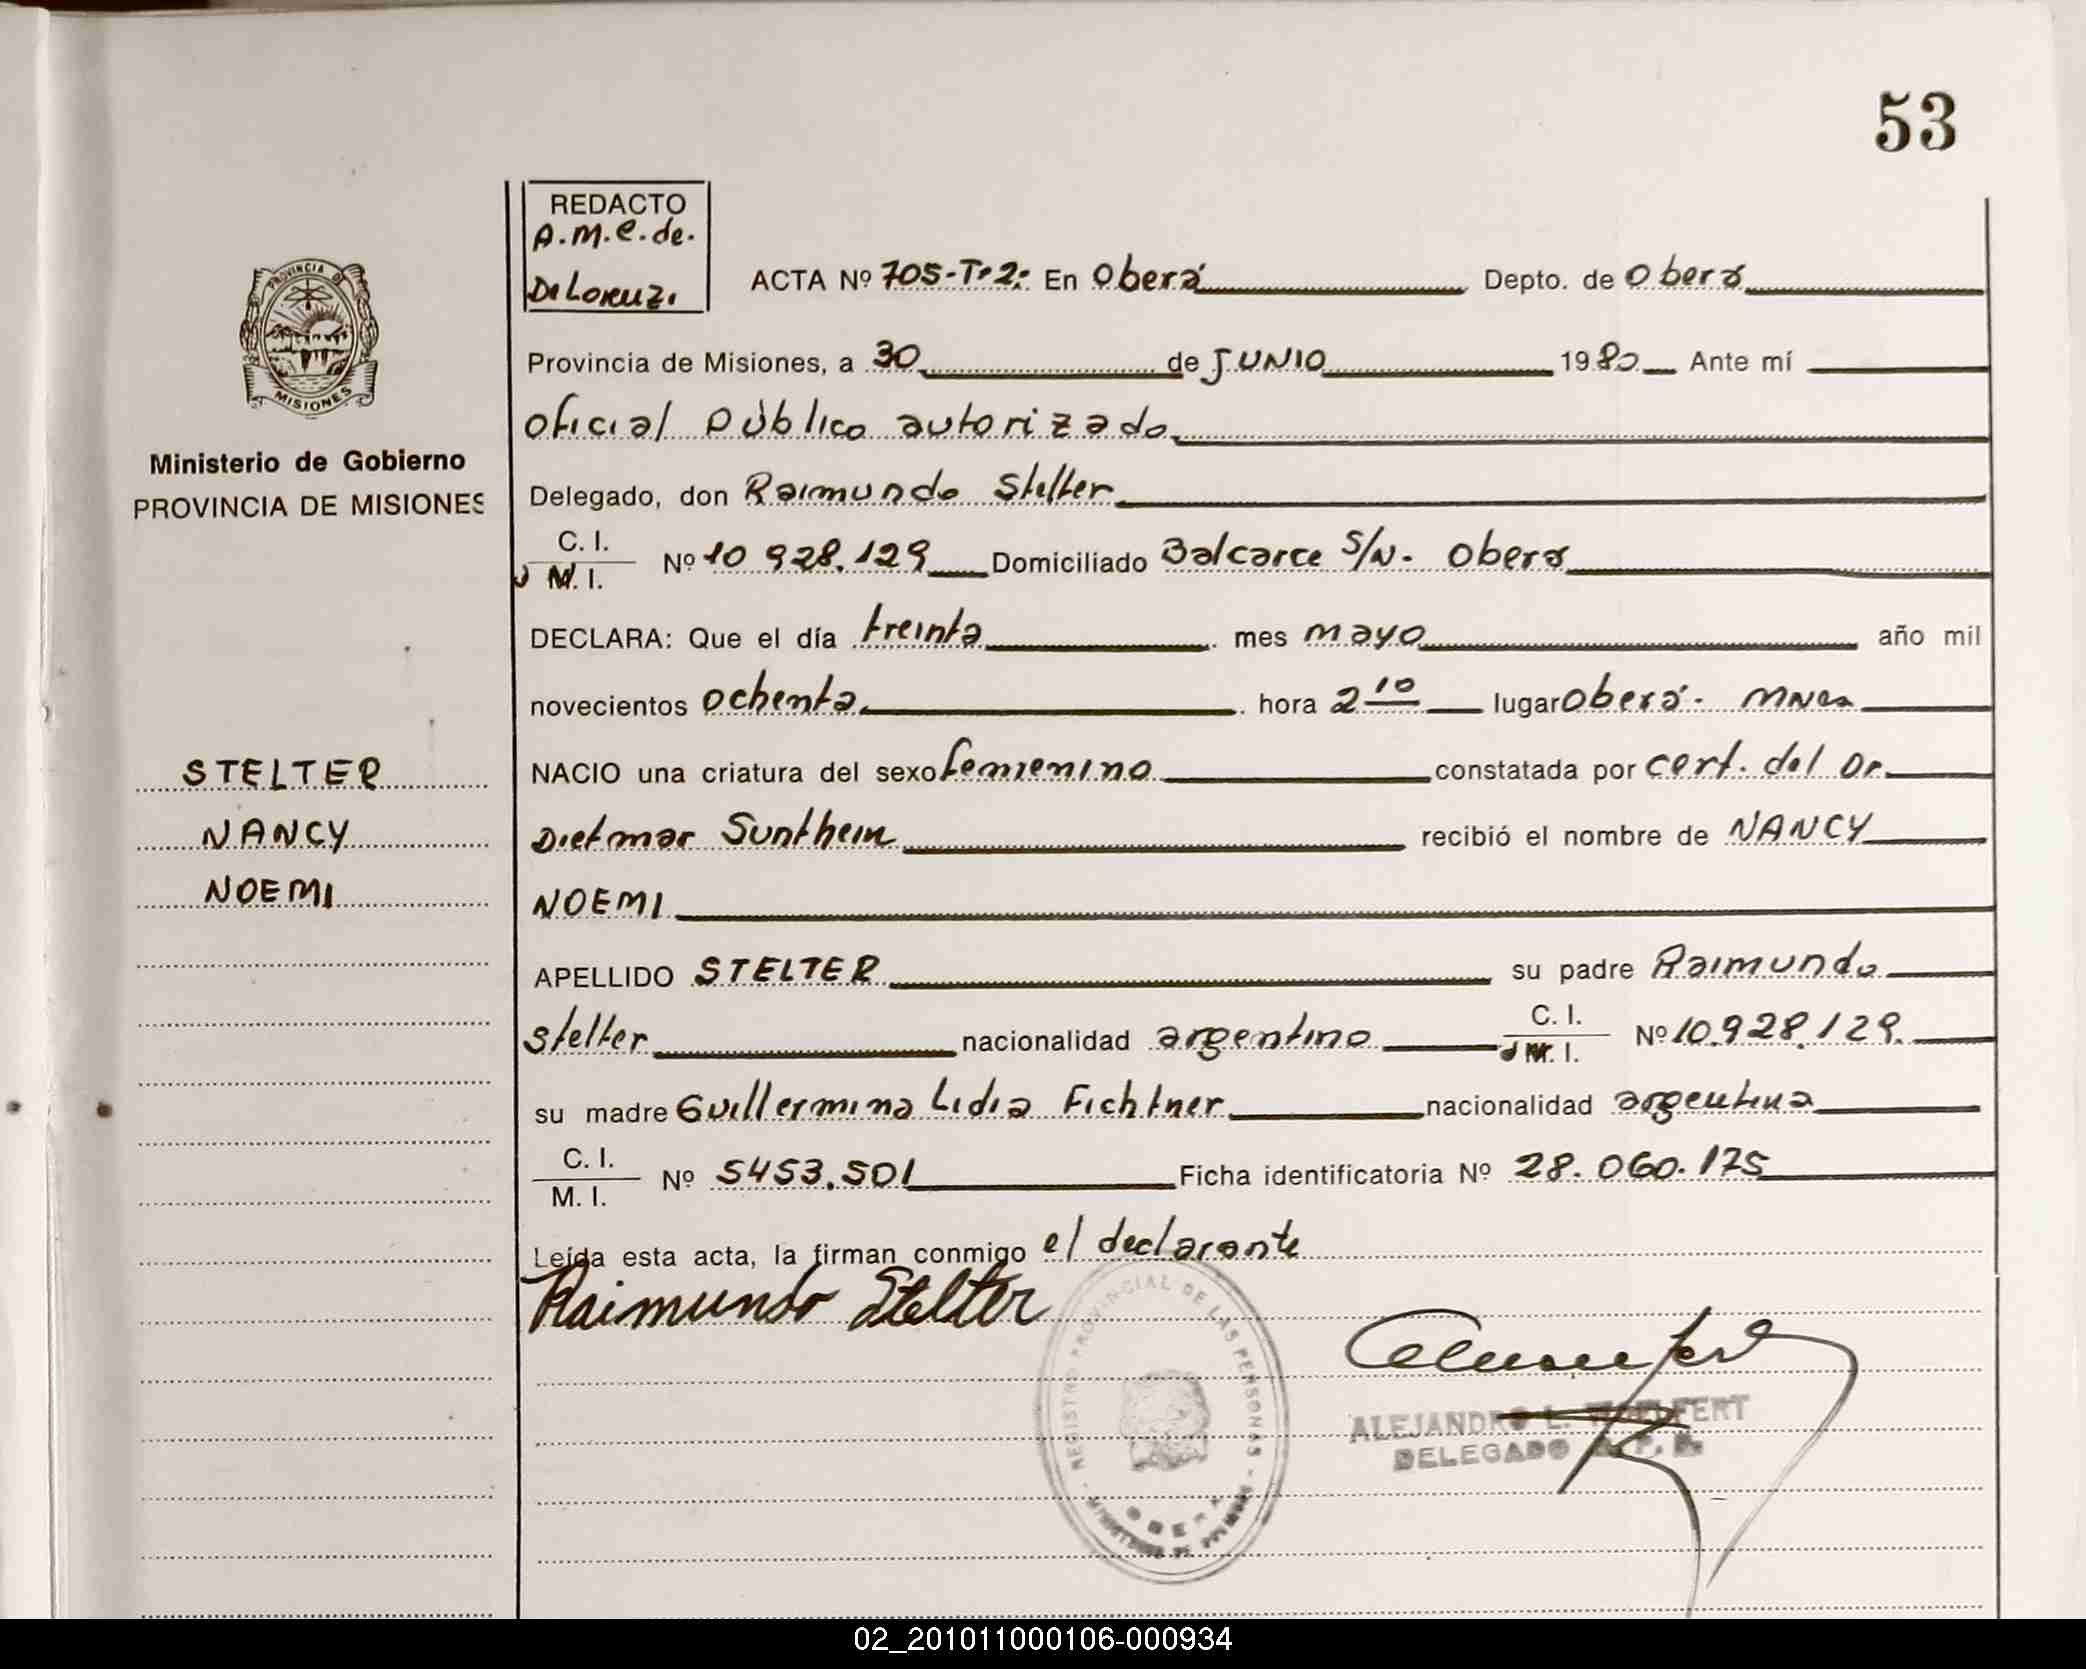 53
REDACTO
A.M.E. de.
De Lorenzi.
PROVINCIA DE
MISIONES
Ministerio de Gobierno
PROVINCIA DE MISIONES
ACTA Nº 705-Tº2: En Oberá Depto. de Oberá
Provincia de Misiones, a 30 de JUNIO 1980 Ante mí
Oficial Público autorizado
Delegado, don Raimundo Stelter
C. I.
M. I. Nº 10.928.129 Domiciliado Balcarce S/N. Oberá
DECLARA: Que el día treinta mes mayo año mil
novecientos ochenta hora 2 10 lugar Oberá. Mnes
NACIO una criatura del sexo femienino constatada por cert. del Dr.
Dietmar Sunthein recibió el nombre de NANCY
NOEMI
APELLIDO STELTER su padre Raimundo
Stelter nacionalidad argentino C. I.
M. I. Nº 10.928.129.
su madre Guillermina Lidia Fichtner nacionalidad argentina
C. I.
M. I. Nº 5453.501 Ficha identificatoria Nº 28.060.175
Leída esta acta, la firman conmigo el declarante
Raimundo Stelter
STELTER
NANCY
NOEMI
REGISTRO PROVINCIAL DE LAS PERSONAS
OBERA
ALEJANDRO L. WOELFERT
DELEGADO R. P. P.
02_201011000106-000934